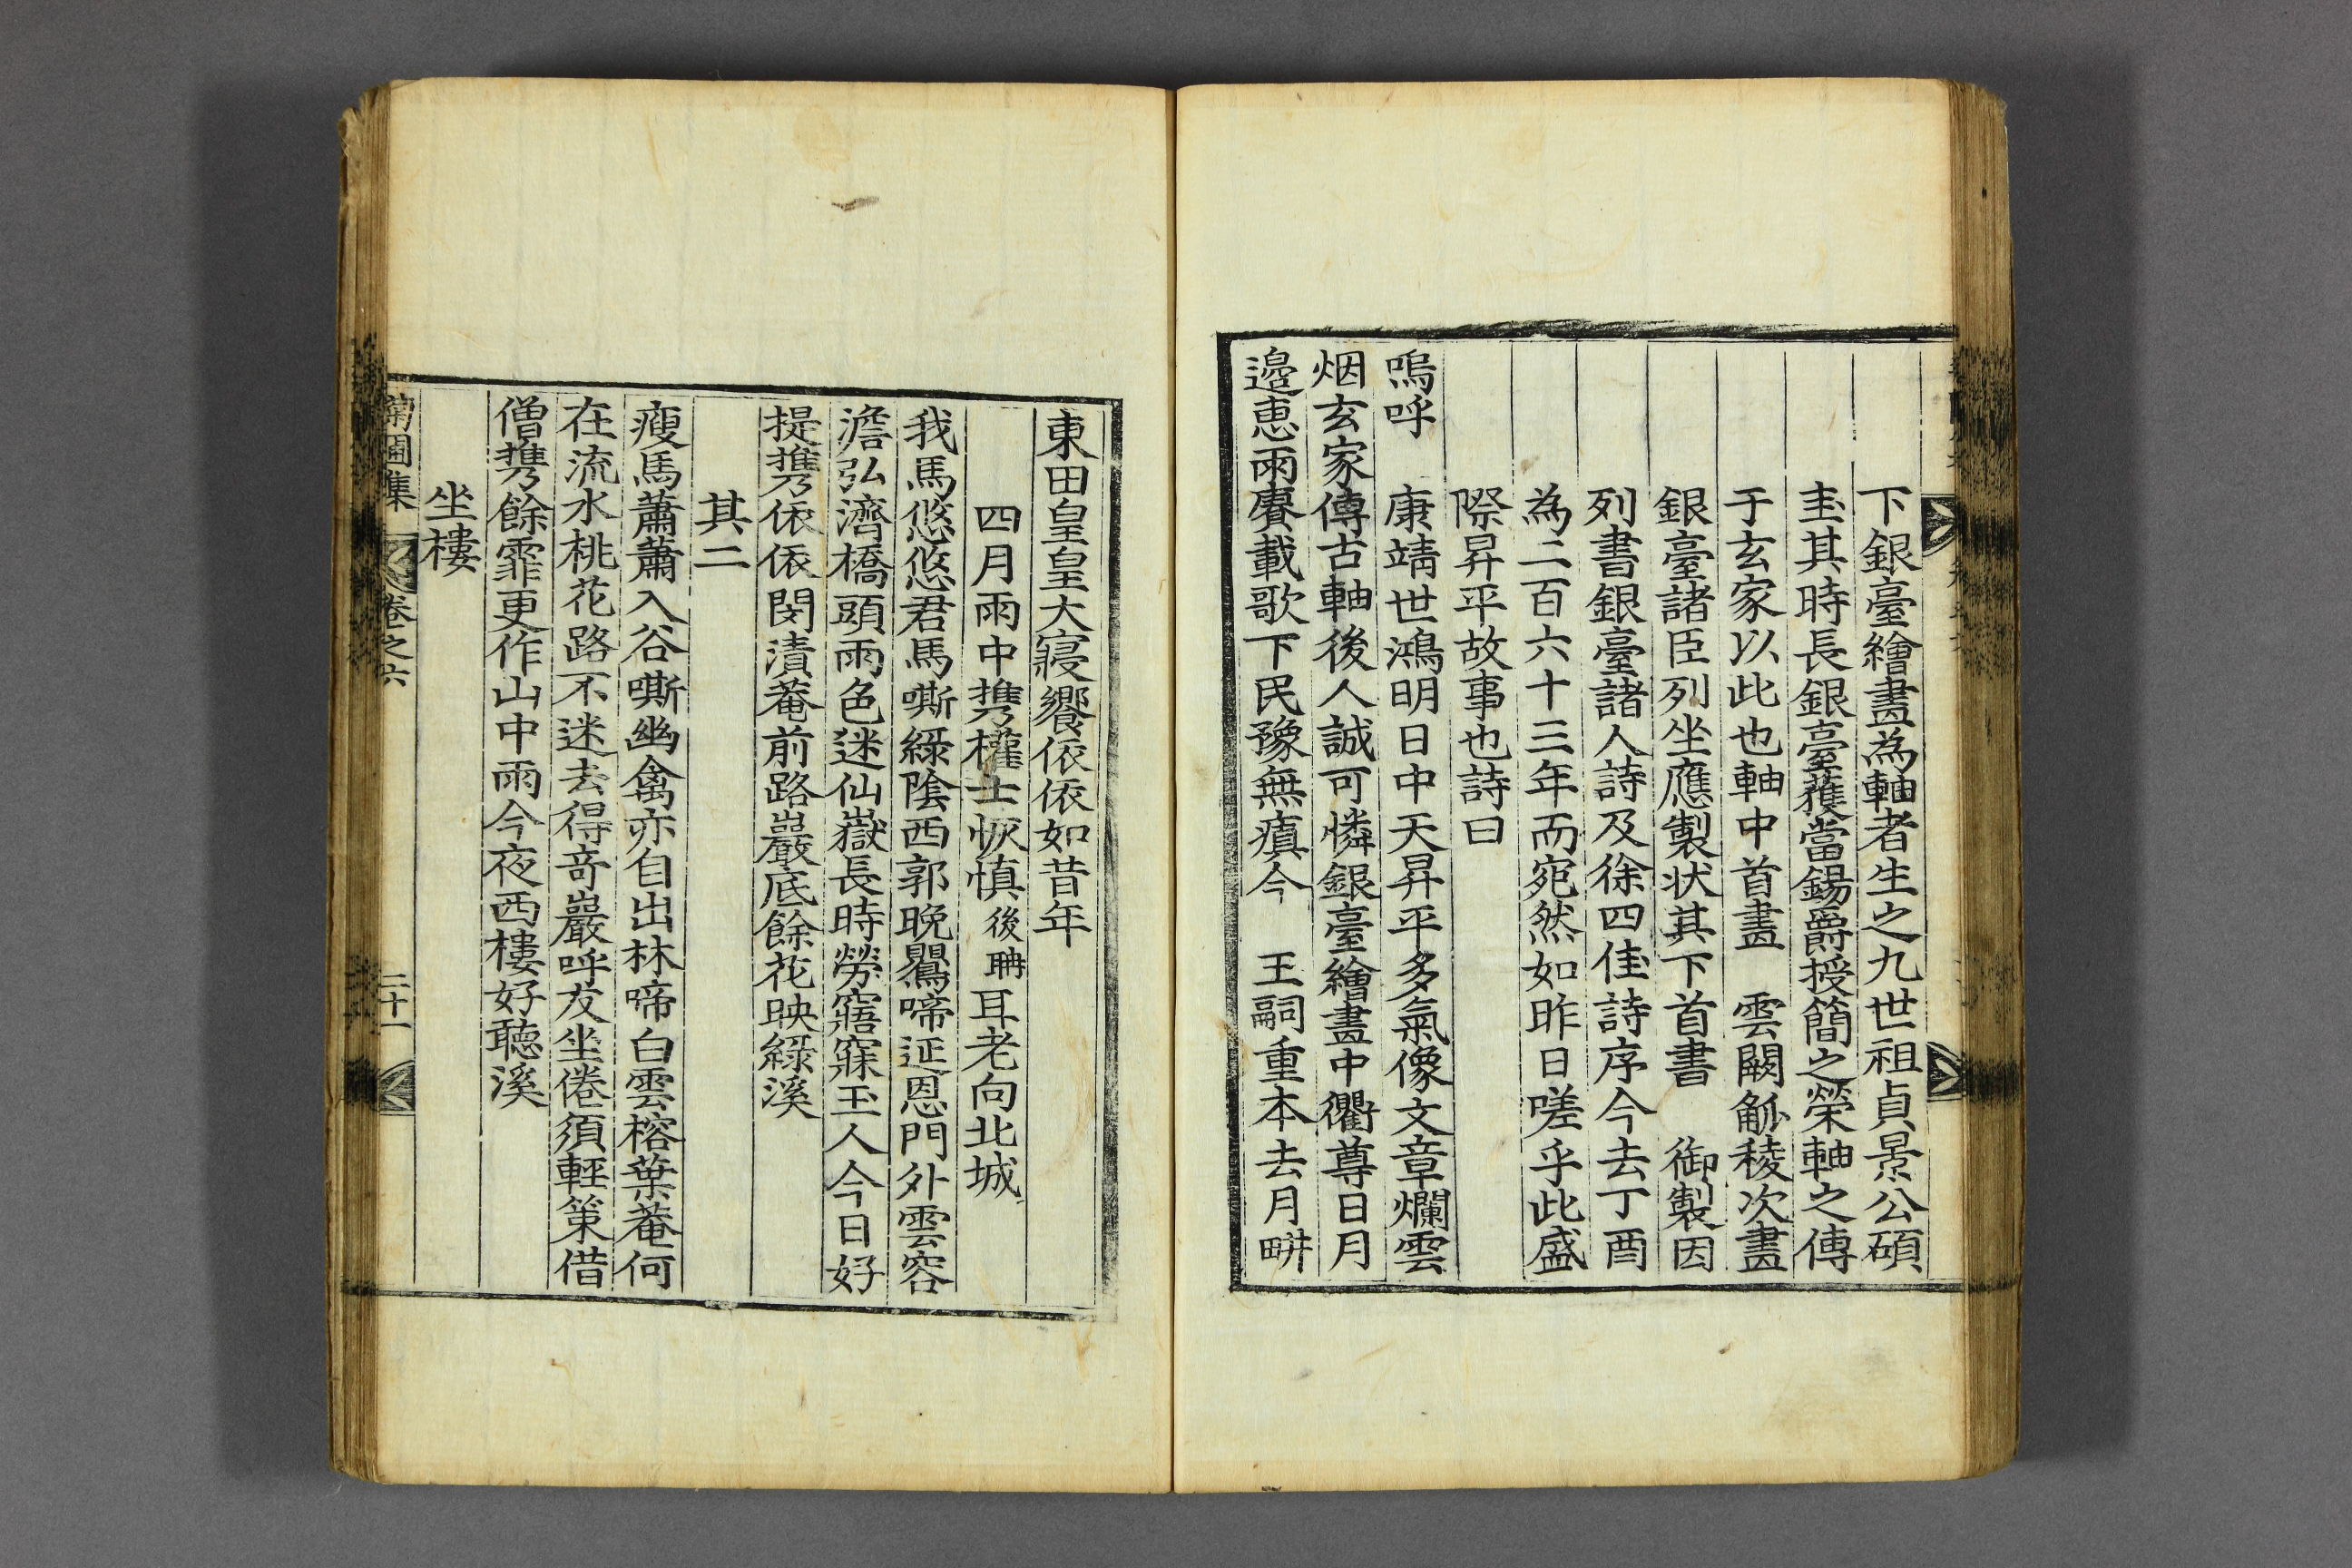 下銀臺繪畵為軸者生之九世祖貞景公碩
圭其時長銀臺獲當錫爵授簡之榮軸之傳
于玄家以此也軸中首畵　雲闕觚稜次畵
銀臺諸臣列坐應製状其下首書　御製因
列書銀臺諸人詩及徐四佳詩序今去丁酉
為二百六十三年而宛然如昨日嗟乎此盛
際昇平故事也詩曰
嗚呼　康靖世鴻明日中天昇平多氣像文章爛雲
烟玄家傳古軸後人誠可憐銀臺繪畵中衢尊日月
邉恵雨賡載歌下民豫無瘨今　王嗣重本去月畊
東田皇皇大寢饗依依如昔年
四月雨中携權士恢慎後聃耳老向北城
我馬悠悠君馬嘶綠陰西郭晩鸎啼延恩門外雲容
澹弘濟橋頭雨色迷仙嶽長時勞寤寐玉人今日好
提携依依閔漬菴前路巖底餘花映綠溪
其二
瘦馬蕭蕭入谷嘶幽禽亦自出林啼白雲榕葉菴何
在流水桃花路不迷去得竒巖呼友坐倦須輕策借
僧携餘霏更作山中雨今夜西樓好聽溪
坐樓
菊圃集
卷之六
二十一